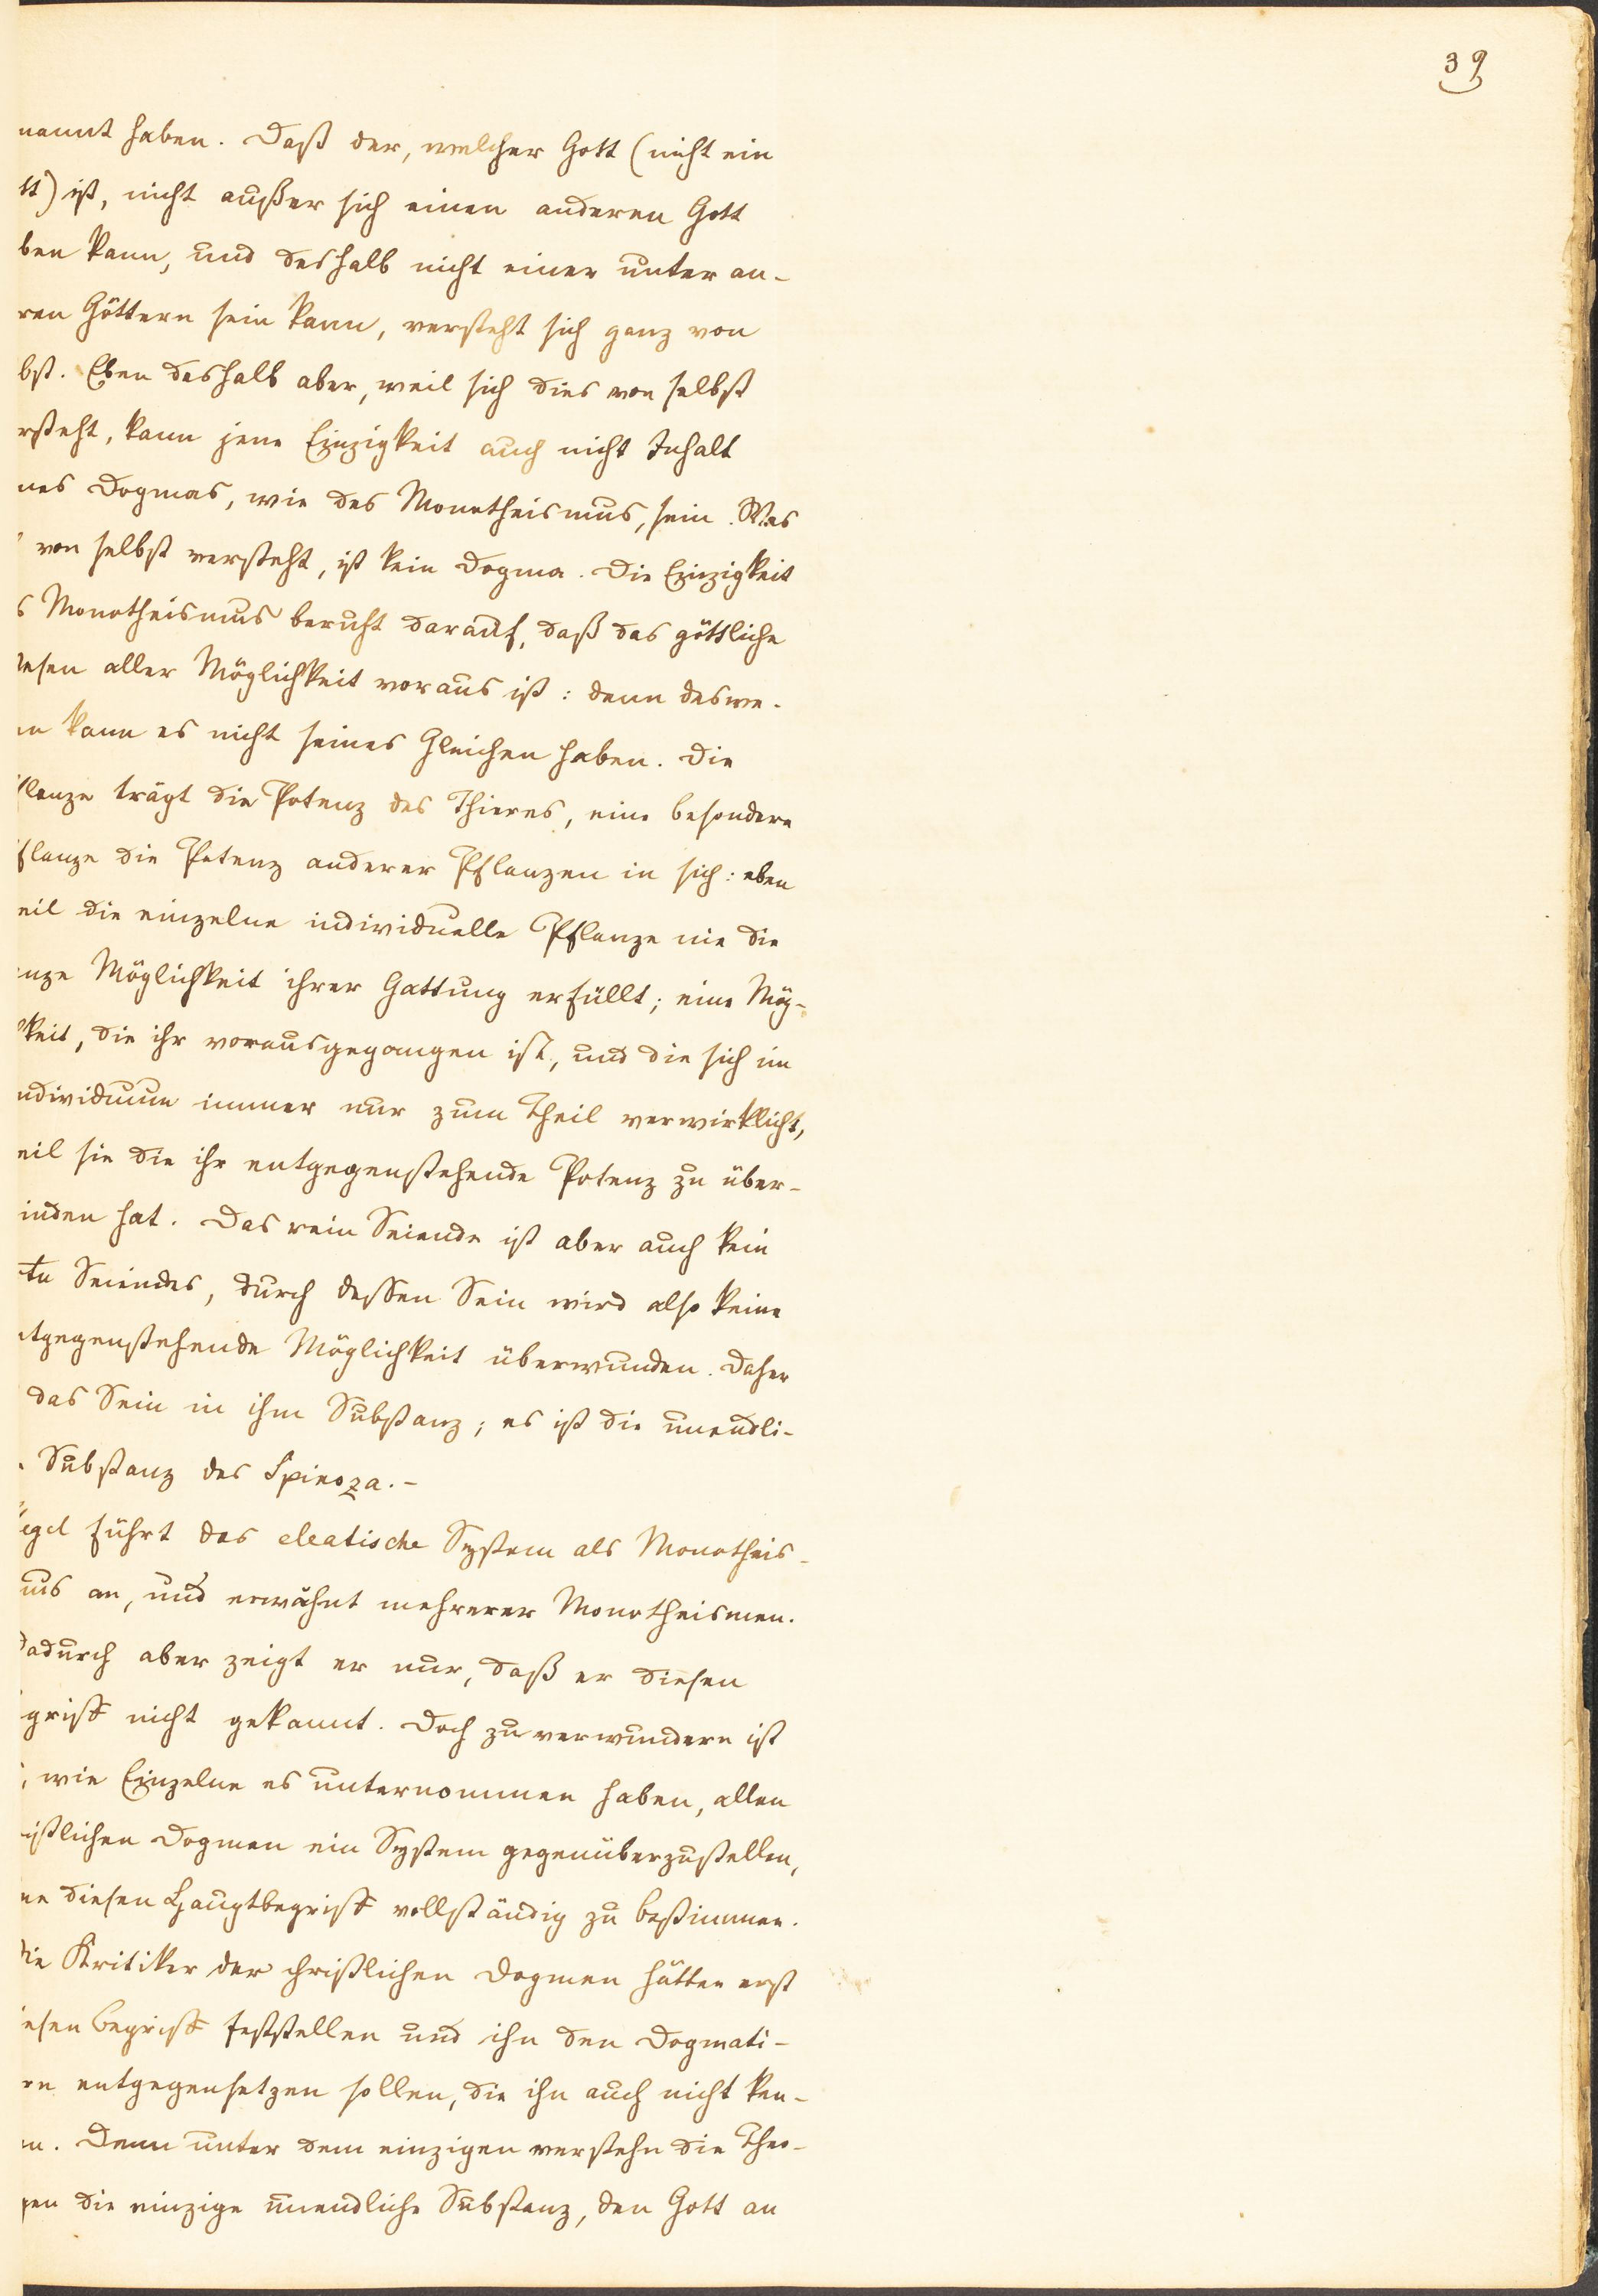 39
nannt haben. Daß der, welcher Gott (nicht ein
tt) ist, nicht außer sich einen anderen Gott
ben kann, und deshalb nicht einer unter an-
ren Göttern sein kann, versteht sich ganz von
bst. Eben deshalb aber, weil sich dies von selbst
rsteht, kann jene Einzigkeit auch nicht Inhalt
nes Dogmas, wie des Monotheismus, sein. Was
von selbst versteht, ist kein Dogma. Die Einzigkeit
s Monotheismus beruht darauf, daß das göttliche
esen aller Möglichkeit voraus ist: denn deswe-
en kann es nicht seines Gleichen haben. Die
flanze trägt die Potenz des Thieres, eine besondere
flanze die Potenz anderer Pflanzen in sich: eben
eil die einzelne individuelle Pflanze nie die
nze Möglichkeit ihrer Gattung erfüllt; eine Mög-
keit, die ihr vorausgegangen ist, und die sich im
ndividuum immer nur zum Theil verwirklicht,
eil sie die ihr entgegenstehende Potenz zu über-
inden hat. Das rein Seiende ist aber auch kein
tu Seiendes, durch dessen Sein wird also keine
tgegenstehende Möglichkeit überwunden. Daher
das Sein in ihm Substanz; es ist die unendli-
Substanz des Spinoza.-
egel führt das eleatische System als Monotheis-
us an, und erwähnt mehrerer Monotheismen.
Dadurch aber zeigt er nur, daß er diesen
griff nicht gekannt. Doch zu verwundern ist
, wie Einzelne es unternommen haben, allen
istlichen Dogmen ein System gegenüberzustellen,
ne diesen Hauptbegriff vollständig zu bestimmen.
Die Kritiker der christlichen Dogmen hätten erst
iesen Begriff feststellen und ihn den Dogmati-
rn entgegensetzen sollen, die ihn auch nicht ken-
en. Denn unter dem einzigen verstehn die Theo-
gen die einzige unendliche Substanz, den Gott an